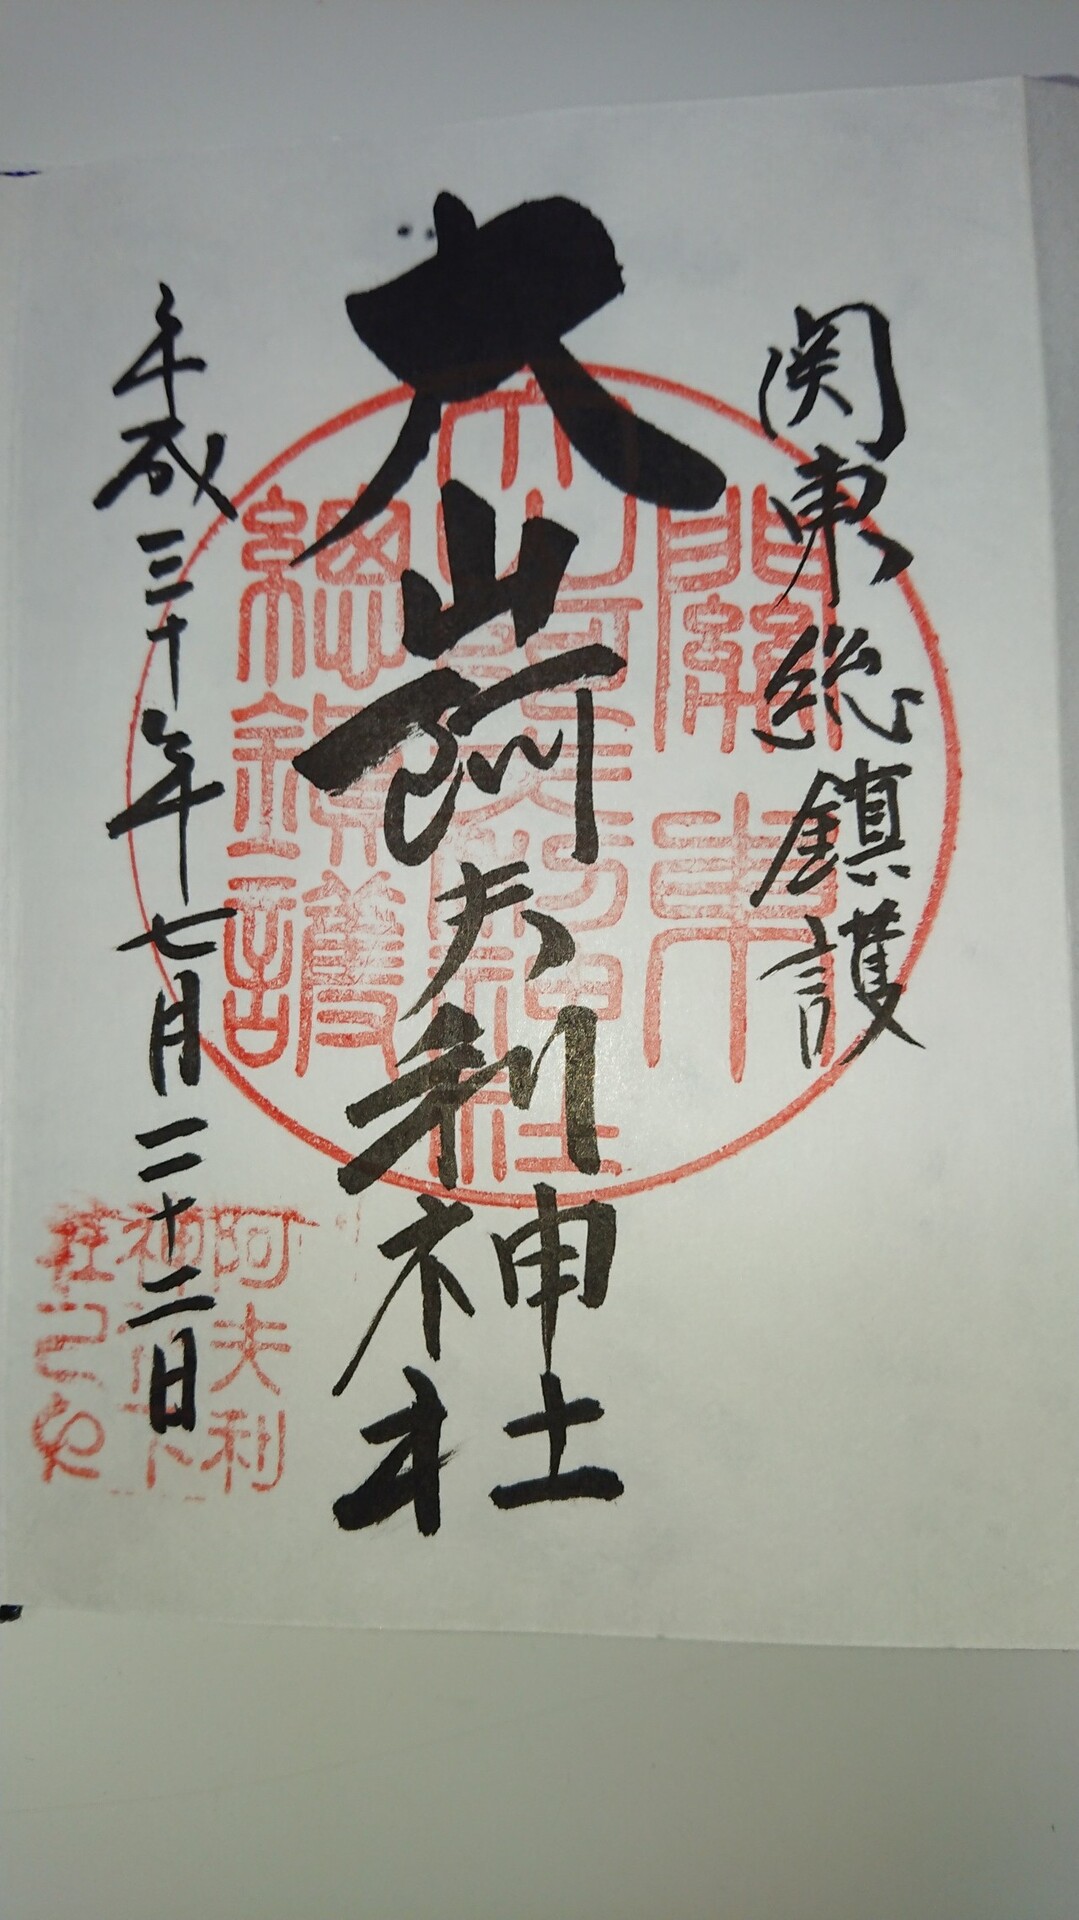 関東総鎮護
大山阿夫利神社
平成三十年七月二十二日
關東
大山阿夫利神社
總鎮護
阿夫利
神社下
社之印